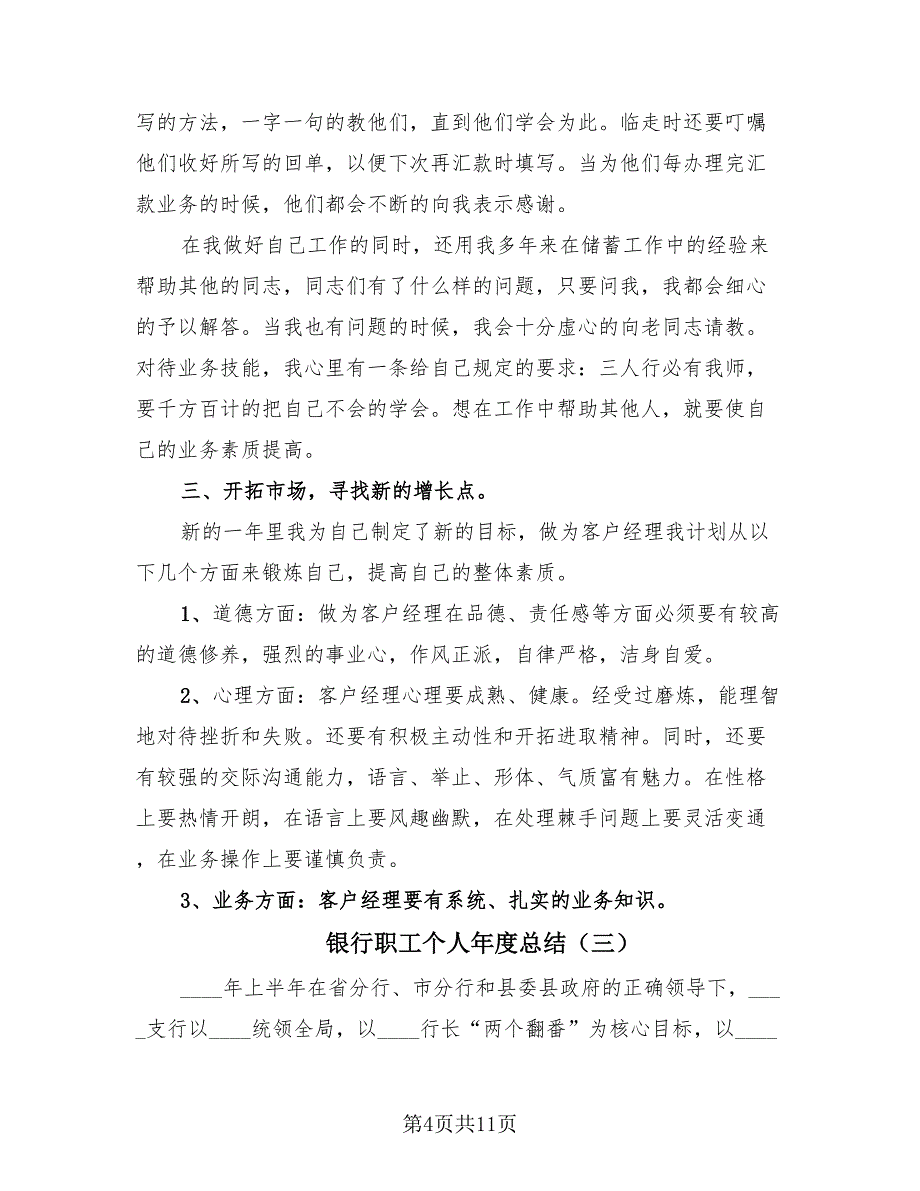 写的方法，一字一句的教他们，直到他们学会为此。临走时还要叮嘱
他们收好所写的回单，以便下次再汇款时填写。当为他们每办理完汇
款业务的时候，他们都会不断的向我表示感谢。
在我做好自己工作的同时，还用我多年来在储蓄工作中的经验来
帮助其他的同志，同志们有了什么样的问题，只要问我，我都会细心
的予以解答。当我也有问题的时候，我会十分虚心的向老同志请教。
对待业务技能，我心里有一条给自己规定的要求：三人行必有我师，
要千方百计的把自己不会的学会。想在工作中帮助其他人，就要使自
己的业务素质提高。
三、开拓市场，寻找新的增长点。
新的一年里我为自己制定了新的目标，做为客户经理我计划从以
下几个方面来锻炼自己，提高自己的整体素质。
1、道德方面：做为客户经理在品德、责任感等方面必须要有较高
的道德修养，强烈的事业心，作风正派，自律严格，洁身自爱。
2、心理方面：客户经理心理要成熟、健康。经受过磨炼，能理智
地对待挫折和失败。还要有积极主动性和开拓进取精神。同时，还要
有较强的交际沟通能力，语言、举止、形体、气质富有魅力。在性格
上要热情开朗，在语言上要风趣幽默，在处理棘手问题上要灵活变通
，在业务操作上要谨慎负责。
3、业务方面：客户经理要有系统、扎实的业务知识。
银行职工个人年度总结（三）
____年上半年在省分行、市分行和县委县政府的正确领导下，___
_支行以____统领全局，以____行长“两个翻番”为核心目标，以____
第4页共11页